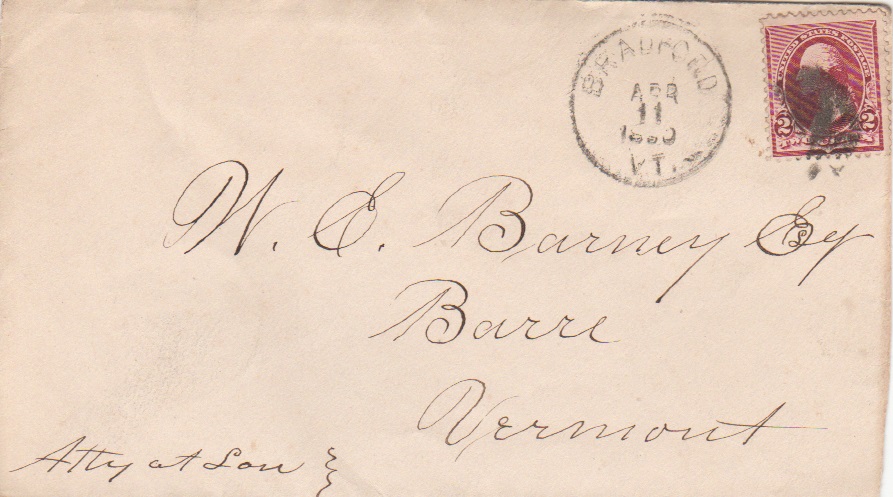 BRADFORD
APR
11
1890
VT.
UNITED STATES POSTAGE
2 2
W. E. Barney Esq
Barre
Vermont
Atty at Law